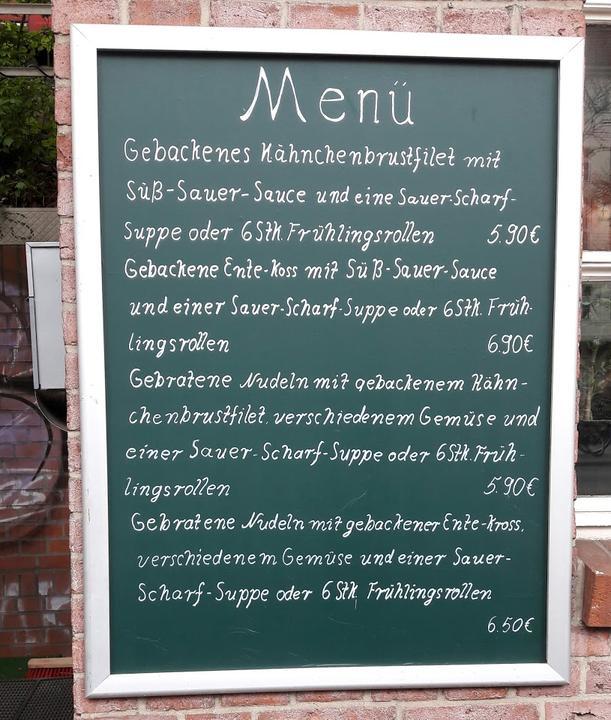 Menü
Gebackenes Hähnchenbrustfilet mit
Süß-Sauer-Sauce und eine Sauer-Scharf-
Suppe oder 6 Stk. Frühlingsrollen 5.90€
Gebackene Ente-Koss mit Süß-Sauer-Sauce
und einer Sauer-Scharf-Suppe oder 6 Stk. Früh-
lingsrollen 6.90€
Gebratene Nudeln mit gebackenem Hähn-
chenbrustfilet, verschiedenem Gemüse und
einer Sauer-Scharf-Suppe oder 6 Stk. Früh-
lingsrollen 5.90€
Gebratene Nudeln mit gebackener Ente-kross,
verschiedenem Gemüse und einer Sauer-
Scharf-Suppe oder 6 Stk Frühlingsrollen
6.50€